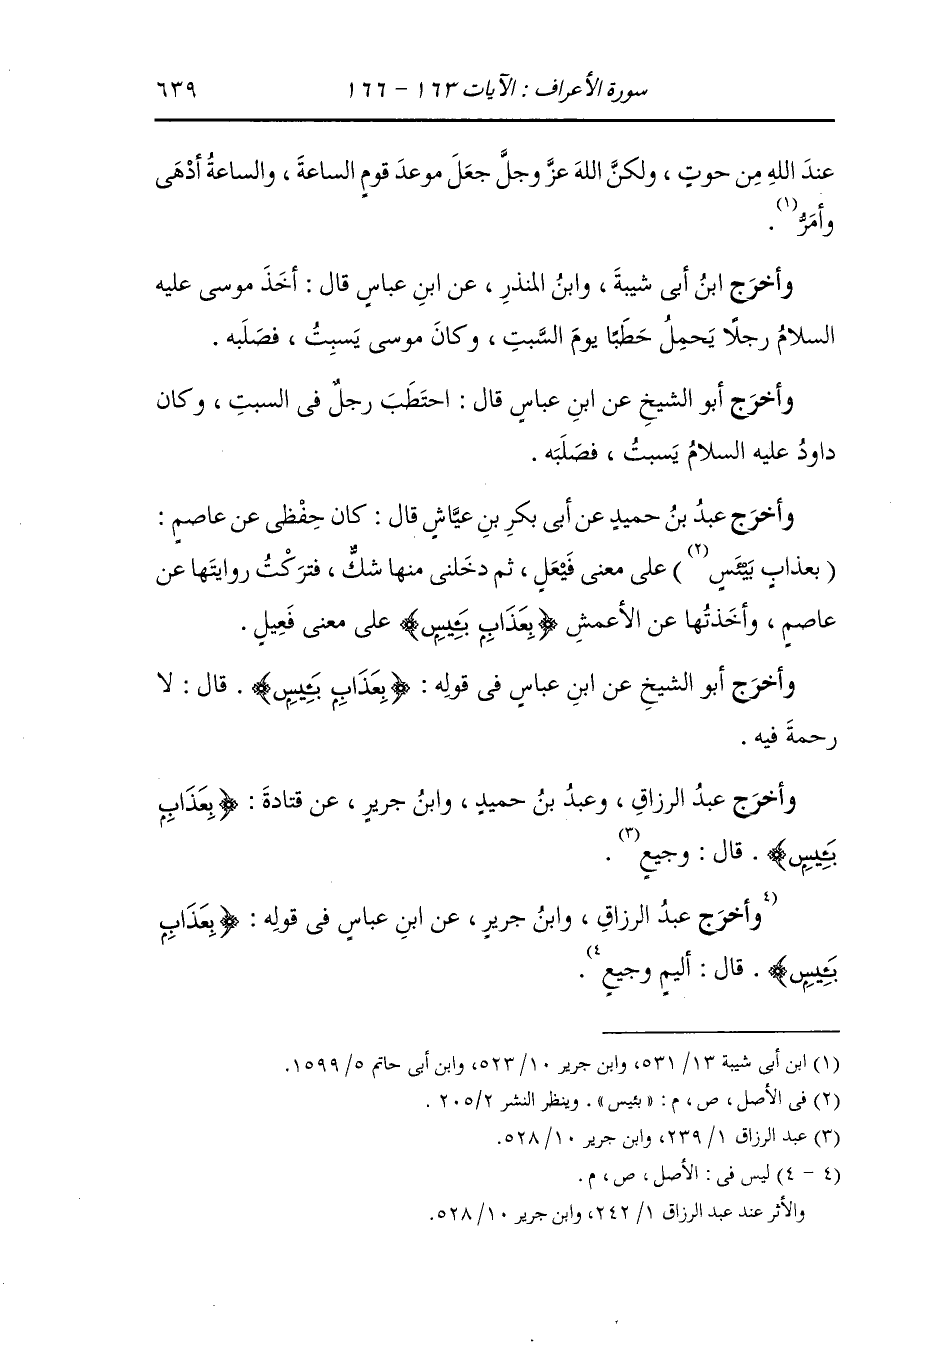 سورة الأعراف : الآيات ١٦٣ - ١٦٦ ٦٣٩
عندَ اللهِ مِن حوتٍ ، ولكنَّ اللهَ عزَّ وجلَّ جعَلَ موعدَ قومٍ الساعةَ ، والساعةُ أدْهَى
وأمَرُّ(١) .
وأخرَج ابنُ أبى شيبةَ ، وابنُ المنذرِ ، عن ابنِ عباسٍ قال : أخَذَ موسى عليه
السلامُ رجلًا يَحمِلُ حَطَبًا يومَ السَّبتِ ، وكانَ موسى يَسبِتُ ، فصَلَبه .
وأخرَج أبو الشيخِ عن ابنِ عباسٍ قال : احتَطَبَ رجلٌ فى السبتِ ، وكان
داودُ عليه السلامُ يَسبتُ ، فصَلَبَه .
وأخرَج عبدُ بنُ حميدٍ عن أبى بكرِ بنِ عيَّاشٍ قال : كان حِفْظى عن عاصمٍ :
( بعذابٍ بَيْئَسٍ(٢) ) على معنى فَيْعَلٍ ، ثم دخَلنى منها شكٌّ ، فترَكْتُ روايتَها عن
عاصمٍ ، وأخَذتُها عن الأعمشِ ﴿بِعَذَابِۭ بَـِٔيسِۭ﴾ على معنى فَعِيلٍ .
وأخرَج أبو الشيخِ عن ابنِ عباسٍ فى قولِه : ﴿بِعَذَابِۭ بَـِٔيسِۭ﴾ . قال : لا
رحمةَ فيه .
وأخرَج عبدُ الرزاقِ ، وعبدُ بنُ حميدٍ ، وابنُ جريرٍ ، عن قتادةَ : ﴿بِعَذَابِۭ
بَـِٔيسِۭ﴾ . قال : وجيعٍ(٣) .
(٤وأخرَج عبدُ الرزاقِ ، وابنُ جريرٍ ، عن ابنِ عباسٍ فى قولِه : ﴿بِعَذَابِۭ
بَـِٔيسِۭ﴾ . قال : أليمٍ وجيعٍ٤) .
(١) ابن أبى شيبة ١٣/ ٥٣١، وابن جرير ١٠/ ٥٢٣، وابن أبى حاتم ٥/ ١٥٩٩.
(٢) فى الأصل ، ص ، م : « بئيس » . وينظر النشر ٢/ ٢٠٥ .
(٣) عبد الرزاق ١/ ٢٣٩، وابن جرير ١٠/ ٥٢٨.
(٤ - ٤) ليس فى : الأصل ، ص ، م .
والأثر عند عبد الرزاق ١/ ٢٤٢، وابن جرير ١٠/ ٥٢٨.